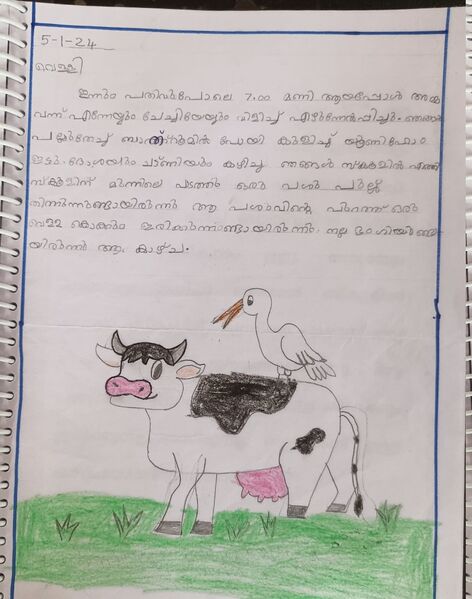 5-1-24
വെള്ളി
ഇന്നും പതിവുപോലെ 7.00 മണി ആയപ്പോൾ അമ്മ
വന്ന് എന്നേയും ചേച്ചിയേയും വിളിച്ച് എഴുന്നേൽപ്പിച്ചു. ഞങ്ങൾ
പല്ലുതേച്ച് ബാത്ത്റൂമിൽ പോയി കുളിച്ച് യൂണിഫോം
ഇട്ടു. ദോശയും ചട്ണിയും കഴിച്ച് ഞങ്ങൾ സ്കൂളിൽ എത്തി
സ്കൂളിന് മുന്നിലെ പാടത്ത് ഒരു പശു പുല്ല്
തിന്നുന്നുണ്ടായിരുന്നു ആ പശുവിന്റെ പുറത്ത് ഒരു
വെള്ള കൊക്കും ഇരിക്കുന്നുണ്ടായിരുന്നു. നല്ല ഭംഗിയുണ്ടാ
യിരുന്നു ആ കാഴ്ച.